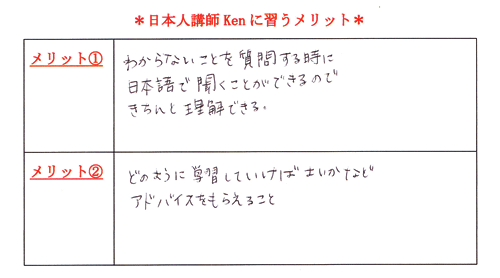 ＊日本人講師 Ken に習うメリット＊
メリット①
わからないことを質問する時に
日本語で聞くことができるので
きちんと理解できる。
メリット②
どのように学習していけばよいかなど
アドバイスをもらえること